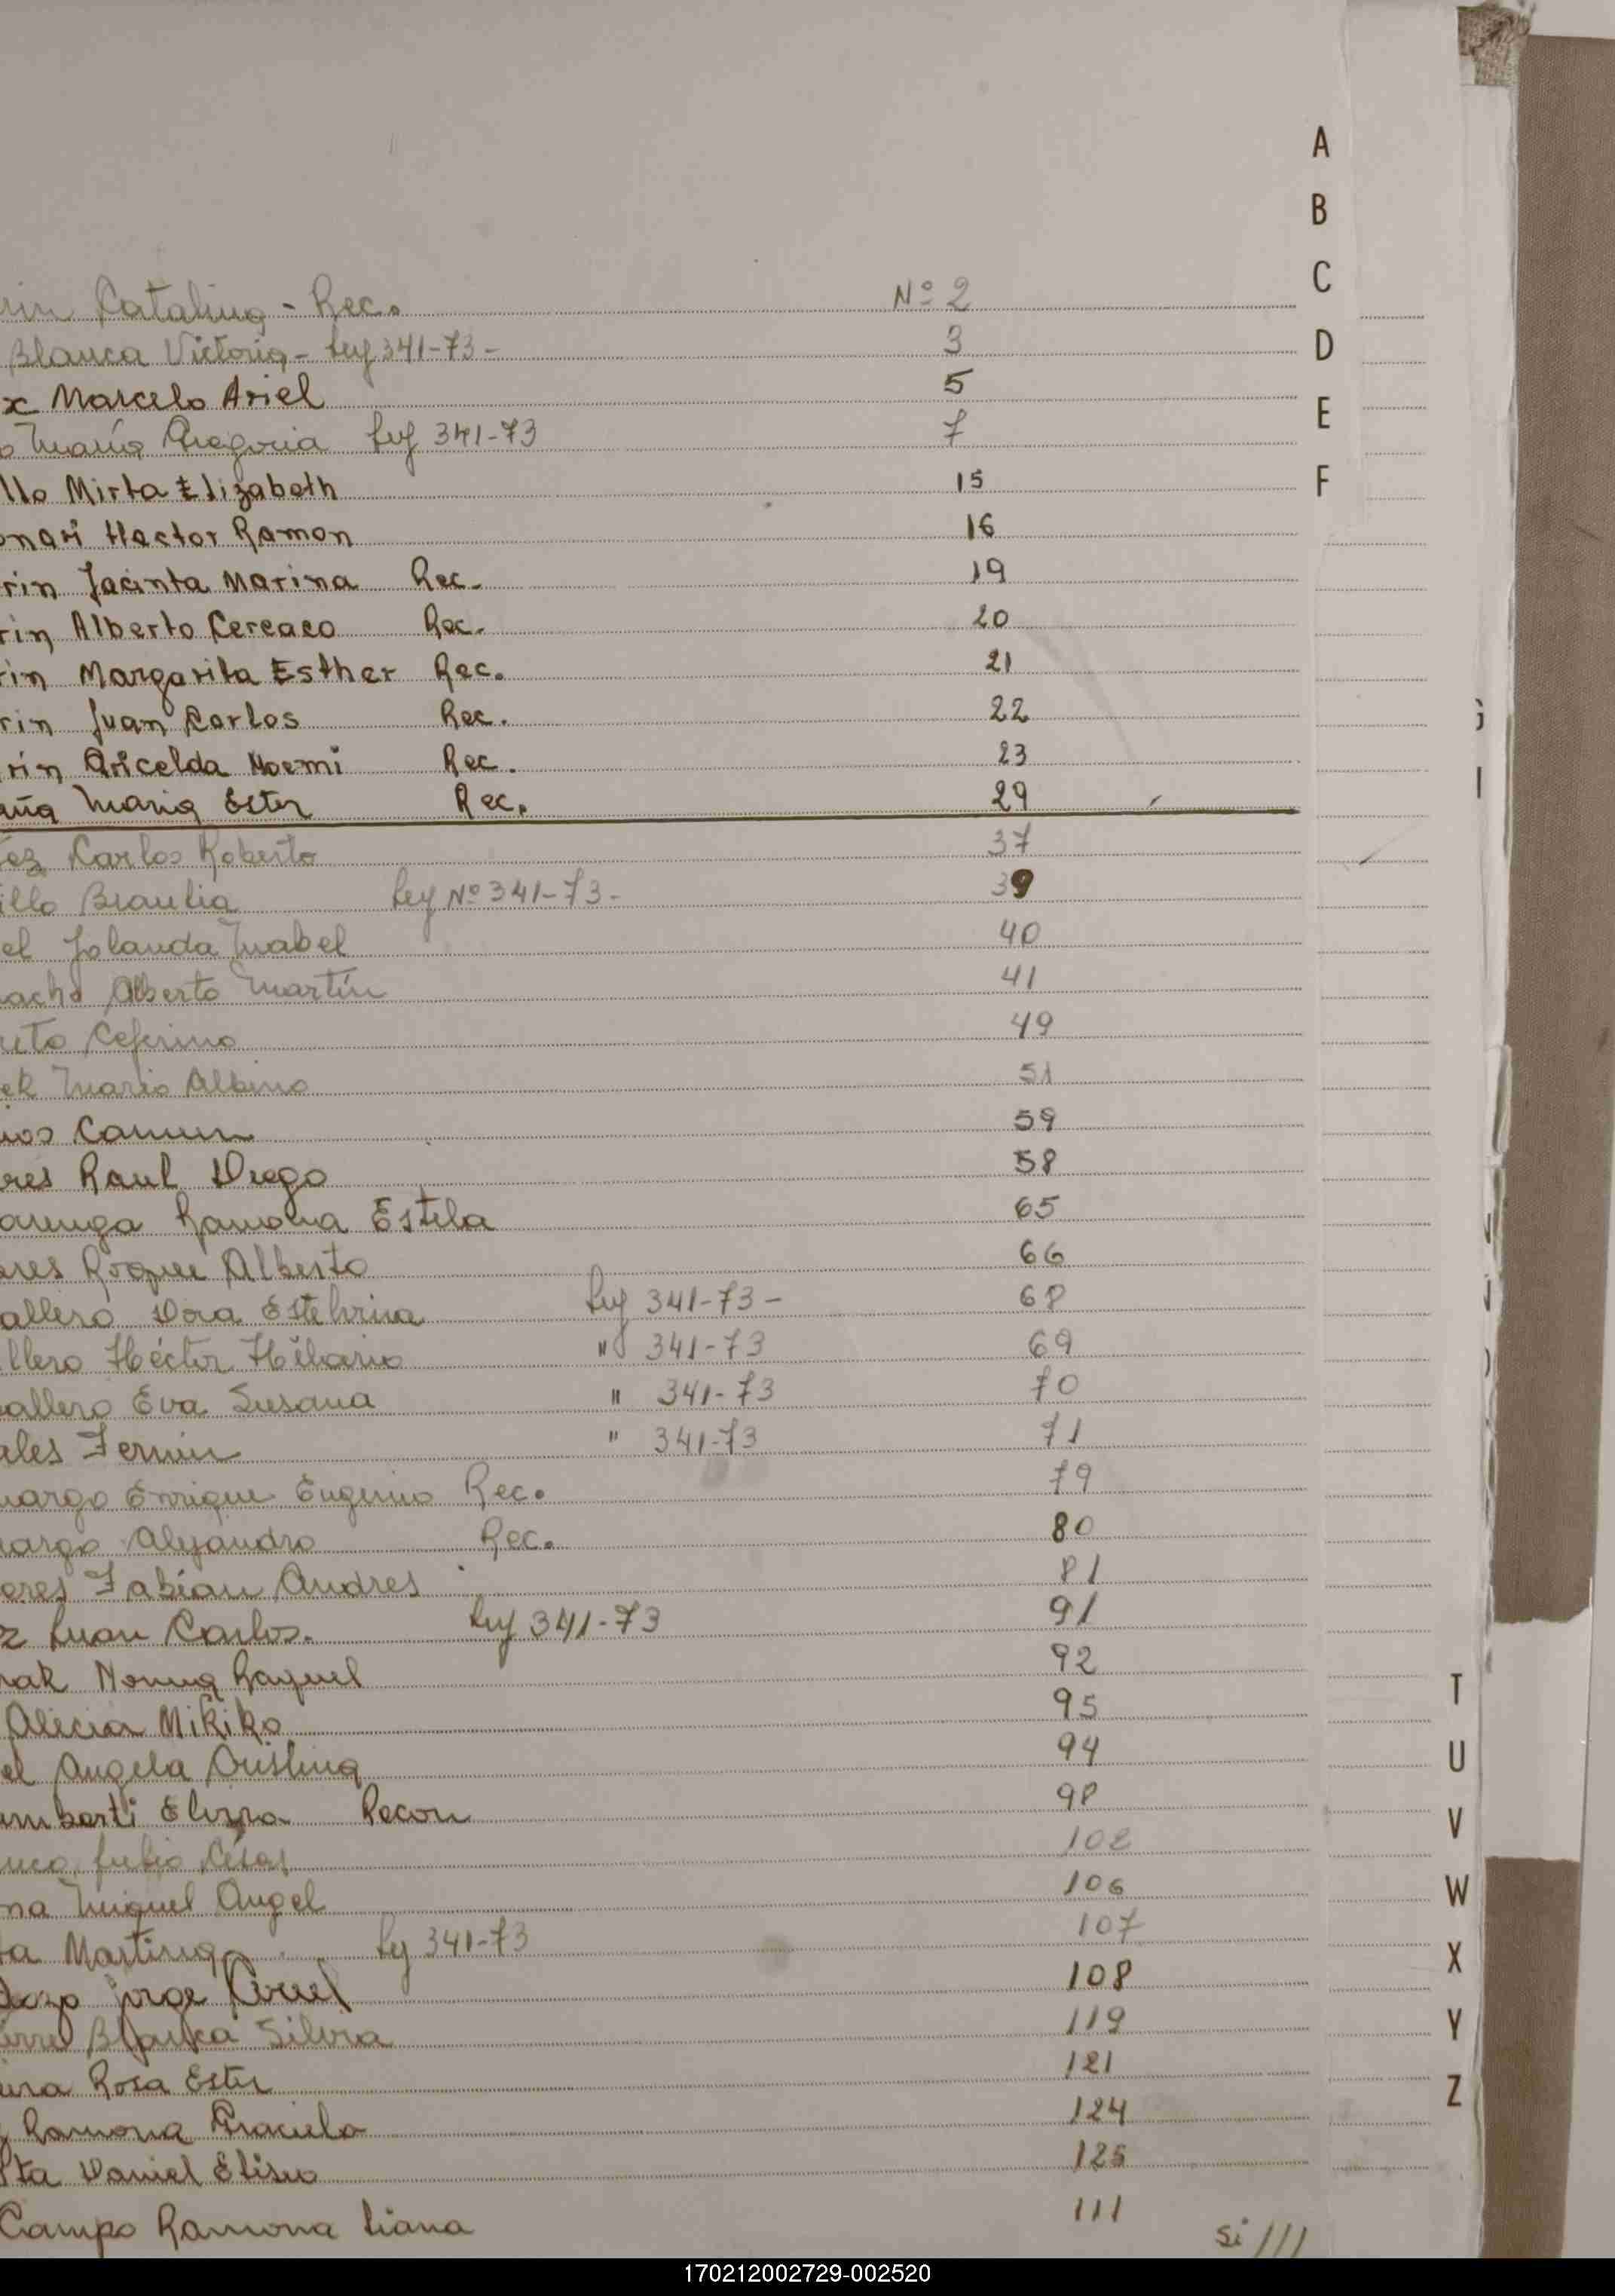 A
B
C
rin Catalina - Rec. Nº 2
Blanca Victoria - Ley 341-73 - 3
D
x Marcelo Ariel 5
E
o María Gregoria Ley 341-73 7
llo Mirta Elizabeth 15
F
onari Hector Ramon 16
rin Jacinta Marina Rec. 19
rin Alberto 20 Rec.
rin Margarita Esther Rec. 21
rin Juan Carlos Rec. 22
rin Gricelda Noemi Rec. 23
aña Maria Ester Rec. 29
ez Carlos Roberto 37
illo Braulia Ley Nº 341-73 - 39
el Jolanda Mabel 40
acho Alberto Martín 41
ieto Ceferino 49
ek Mario Albino 51
ios Carmen 59
res Raul Diego 58
arenga Ramona Estela 65
ares Roque Alberto 66
allero Dora Ley 341-73 - 68
llero Héctor Hilario " 341-73 69
allero Eva Susana " 341-73 70
ales Fermin " 341-73 71
margo Enrique Eugenio Rec. 79
argo Alejandro Rec. 80
eres Fabián Andres 81
z Juan Carlos. Ley 341-73 91
ak Norma Raquel 92
T
Alicia Mikiko 95
el Angela Cristina 94
U
amberti Elvira Recon 98
V
Julio César 102
na Miguel Angel 106
W
ta Martina Ley 341-73 107
X
Jorge 108
Blanca Silvia 119
Y
Rosa Ester 121
Z
Ramona Graciela 124
sta Daniel Eliseo 125
Campo Ramona Liana 111
si ///
170212002729-002520